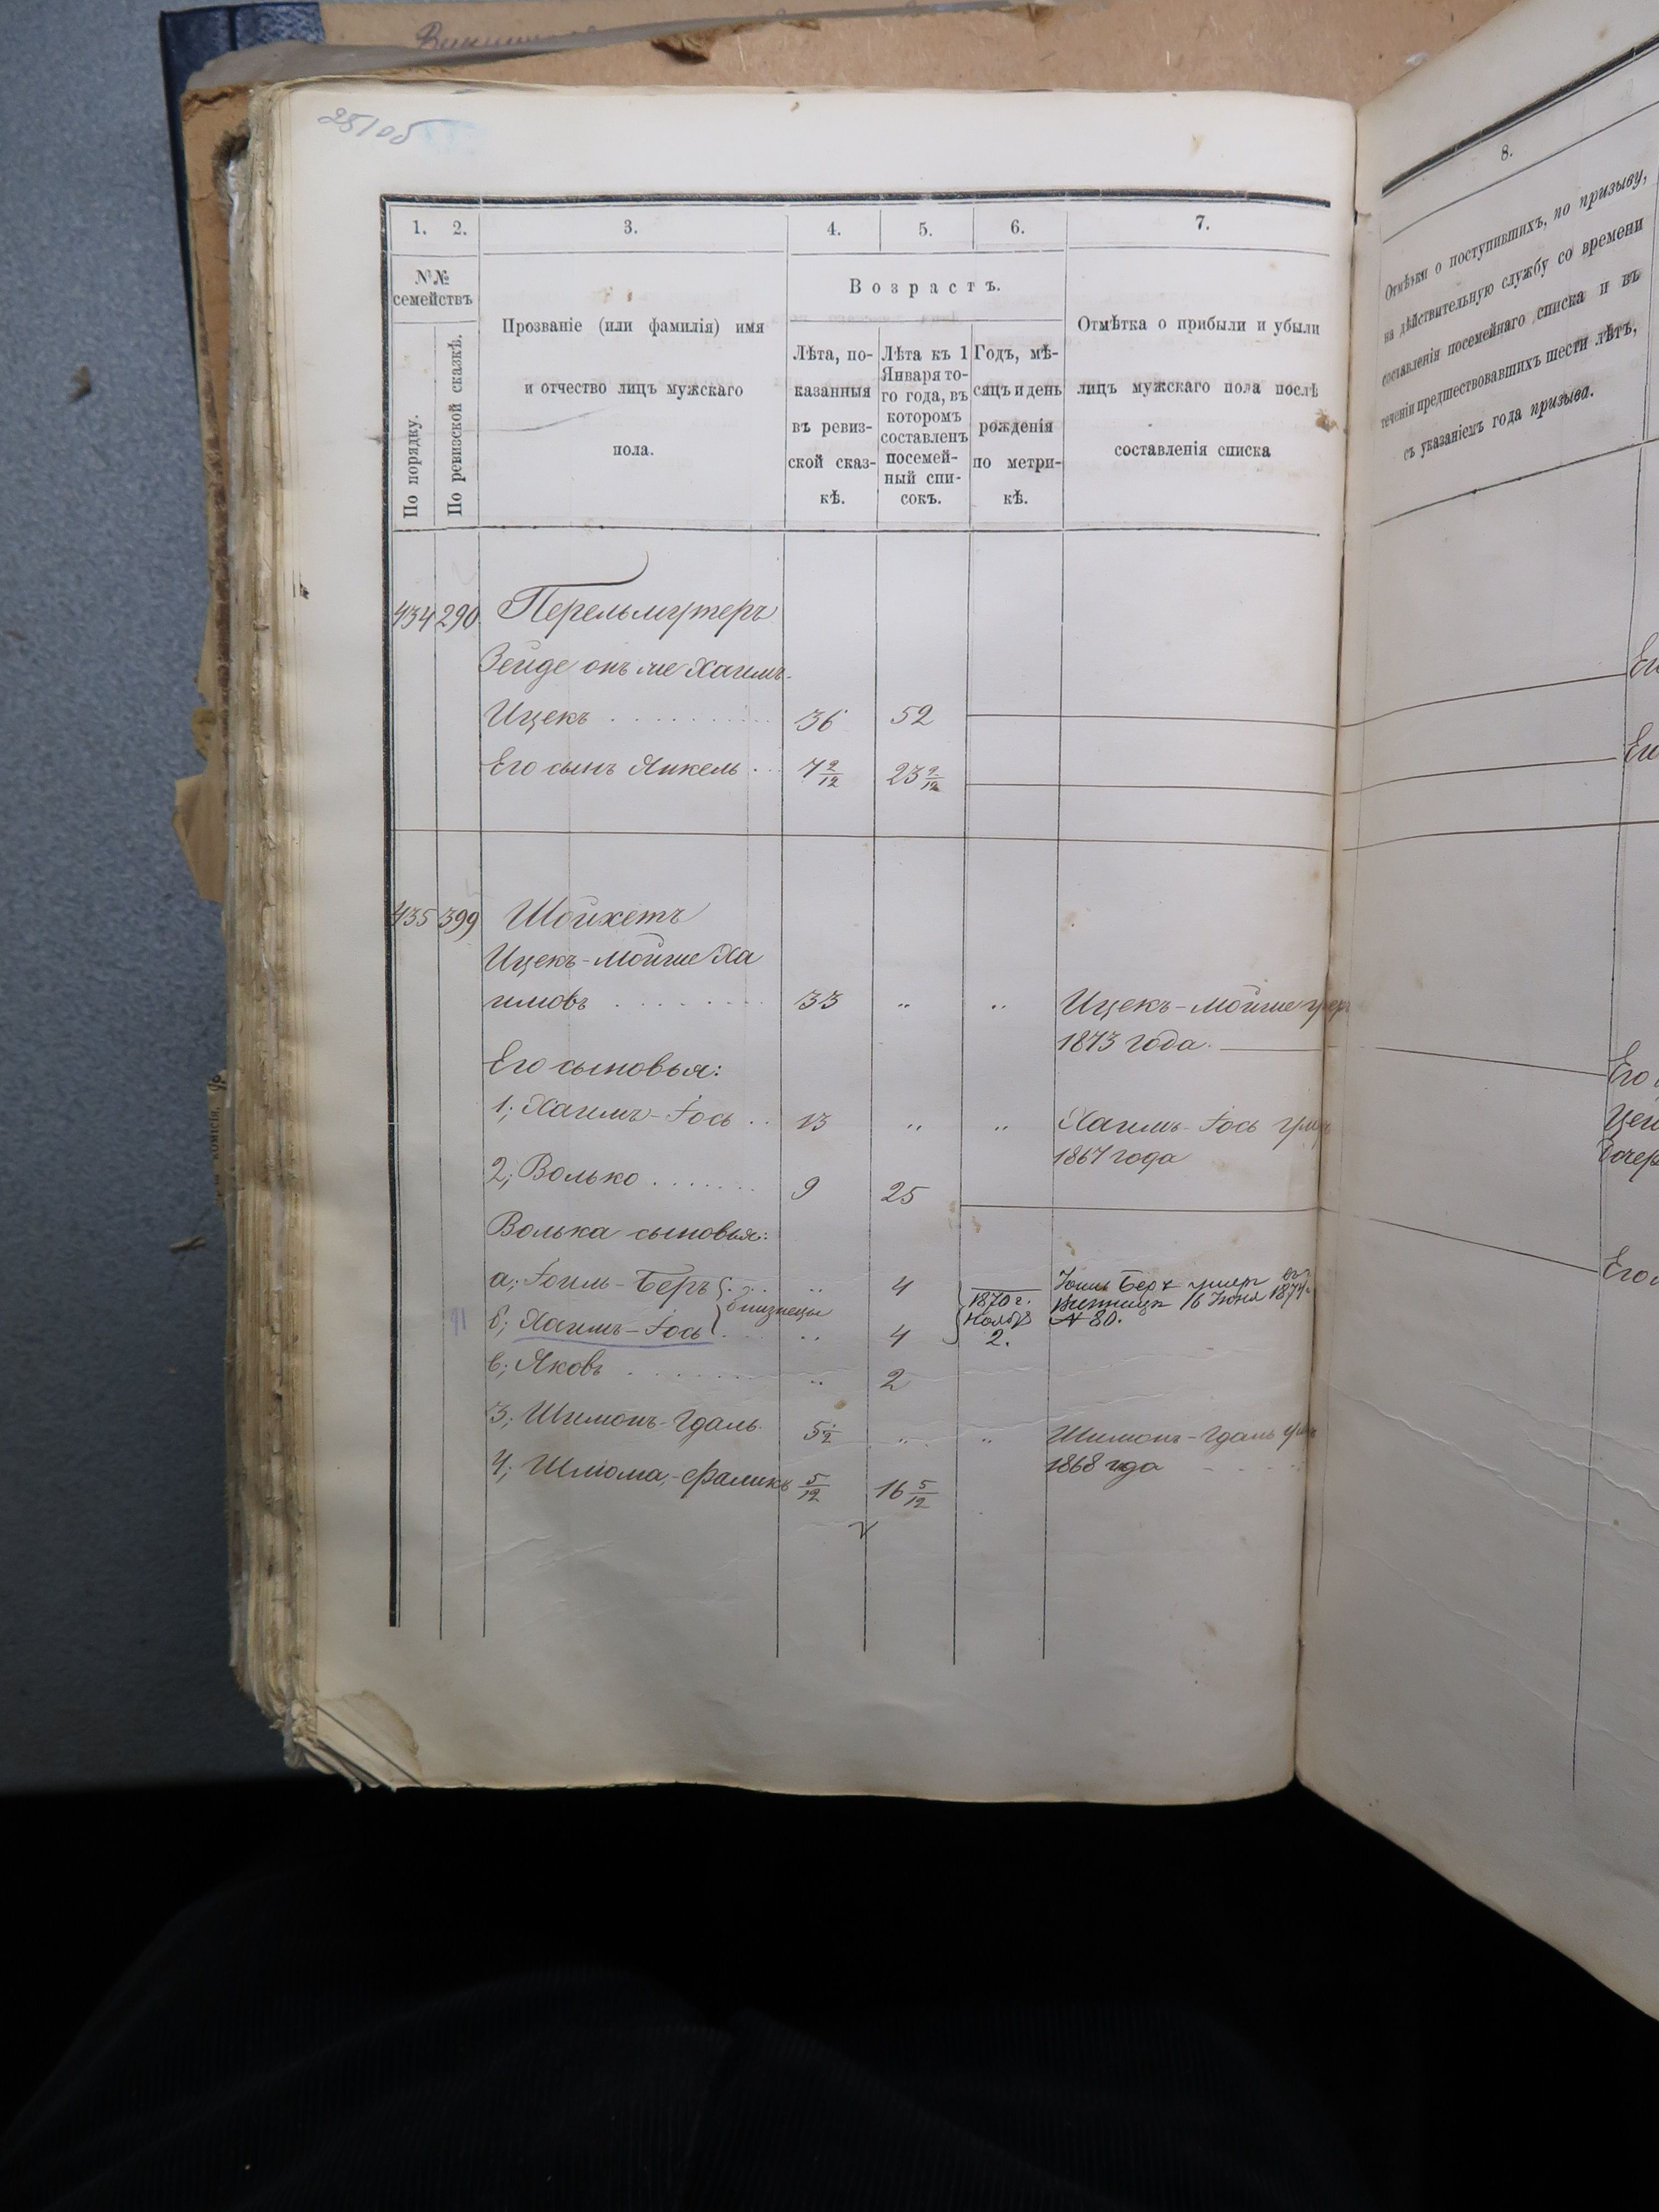 251об
1. 2. 3. 4. 5. 6. 7.
№№ семействъ
По порядку.
По ревизской сказкѣ.
Прозваніе (или фамилія) имя
и отчество лицъ мужскаго
пола.
Возрастъ.
Лѣта, по-
казанныя
въ ревиз-
ской сказ-
кѣ.
Лѣта къ 1
Января то-
го года, въ
которомъ
составленъ
посемей-
ный спи-
сокъ.
Годъ, мѣ-
сяцъ и день
рожденія
по метри-
кѣ.
Отмѣтка о прибыли и убыли
лицъ мужскаго пола послѣ
составленія списка
434 290 Перельмутеръ
Зейде онъ же Хаимъ-
Ицекъ 36 52
Его сынъ Янкель 7 2/12 23 2/12
435 399 Шойхетъ
Ицекъ-Мойше Ха
имовъ 33 " " Ицекъ-Мойше умеръ
1873 года.
Его сыновья:
1; Хаимъ-Іось 13 " " Хаимъ-Іось
1867 года
2; Волько 9 25
Волька сыновья:
а; Іоиль-Беръ " 4
близнецы
1870 г.
Ноября
2.
Іоиль Беръ умеръ въ
Винница 16 Іюня 1874 г.
№ 80.
91 б; Хаимъ-Іось " 4
в; Яковъ " 2
3; Шимонъ-Гдаль 5 1/2 " " Шимонъ-Гдаль
1868 года
4; Шлиома-Фаликъ 5/12 16 5/12
8.
Отмѣтки о поступившихъ, по призыву,
на дѣйствительную службу со времени
составленія посемейнаго списка и въ
теченіи предшествовавшихъ шести лѣтъ,
съ указаніемъ года призыва.